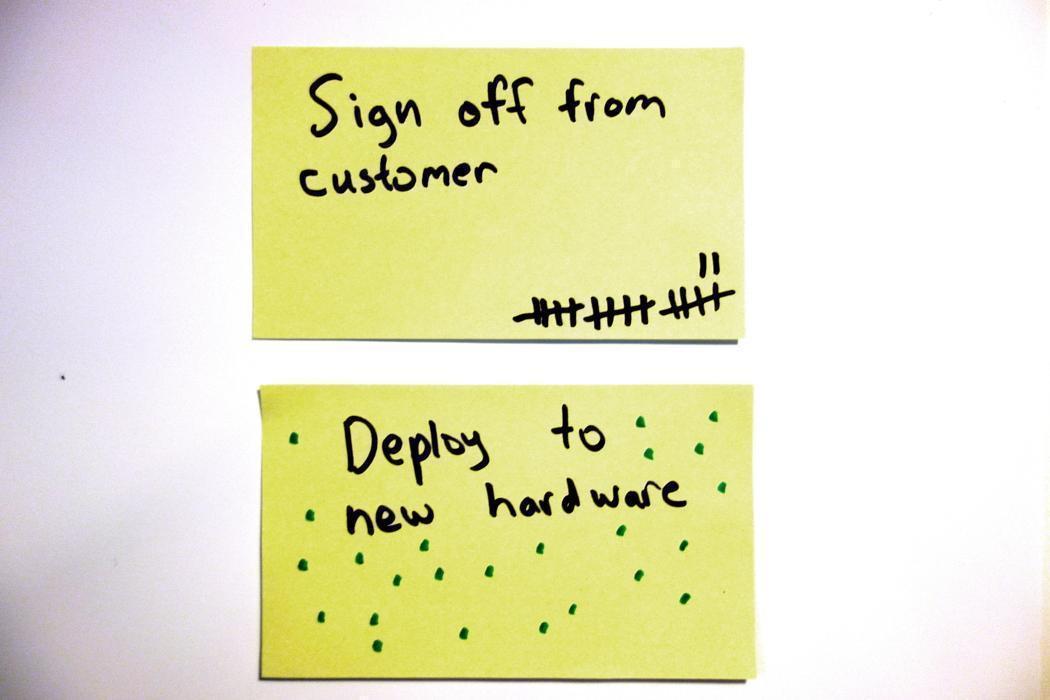 Sign off from
customer
Deploy to
new hardware